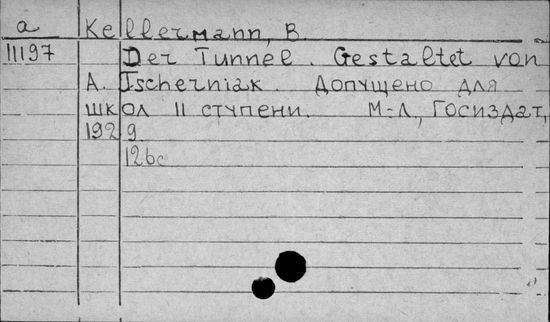 a Kellermann, B.
11197 Der Tunnel. Gestaltet von
A. Tscherniak. Допущено для
школ II ступени. М-Л., Госиздат,
1929.
126с